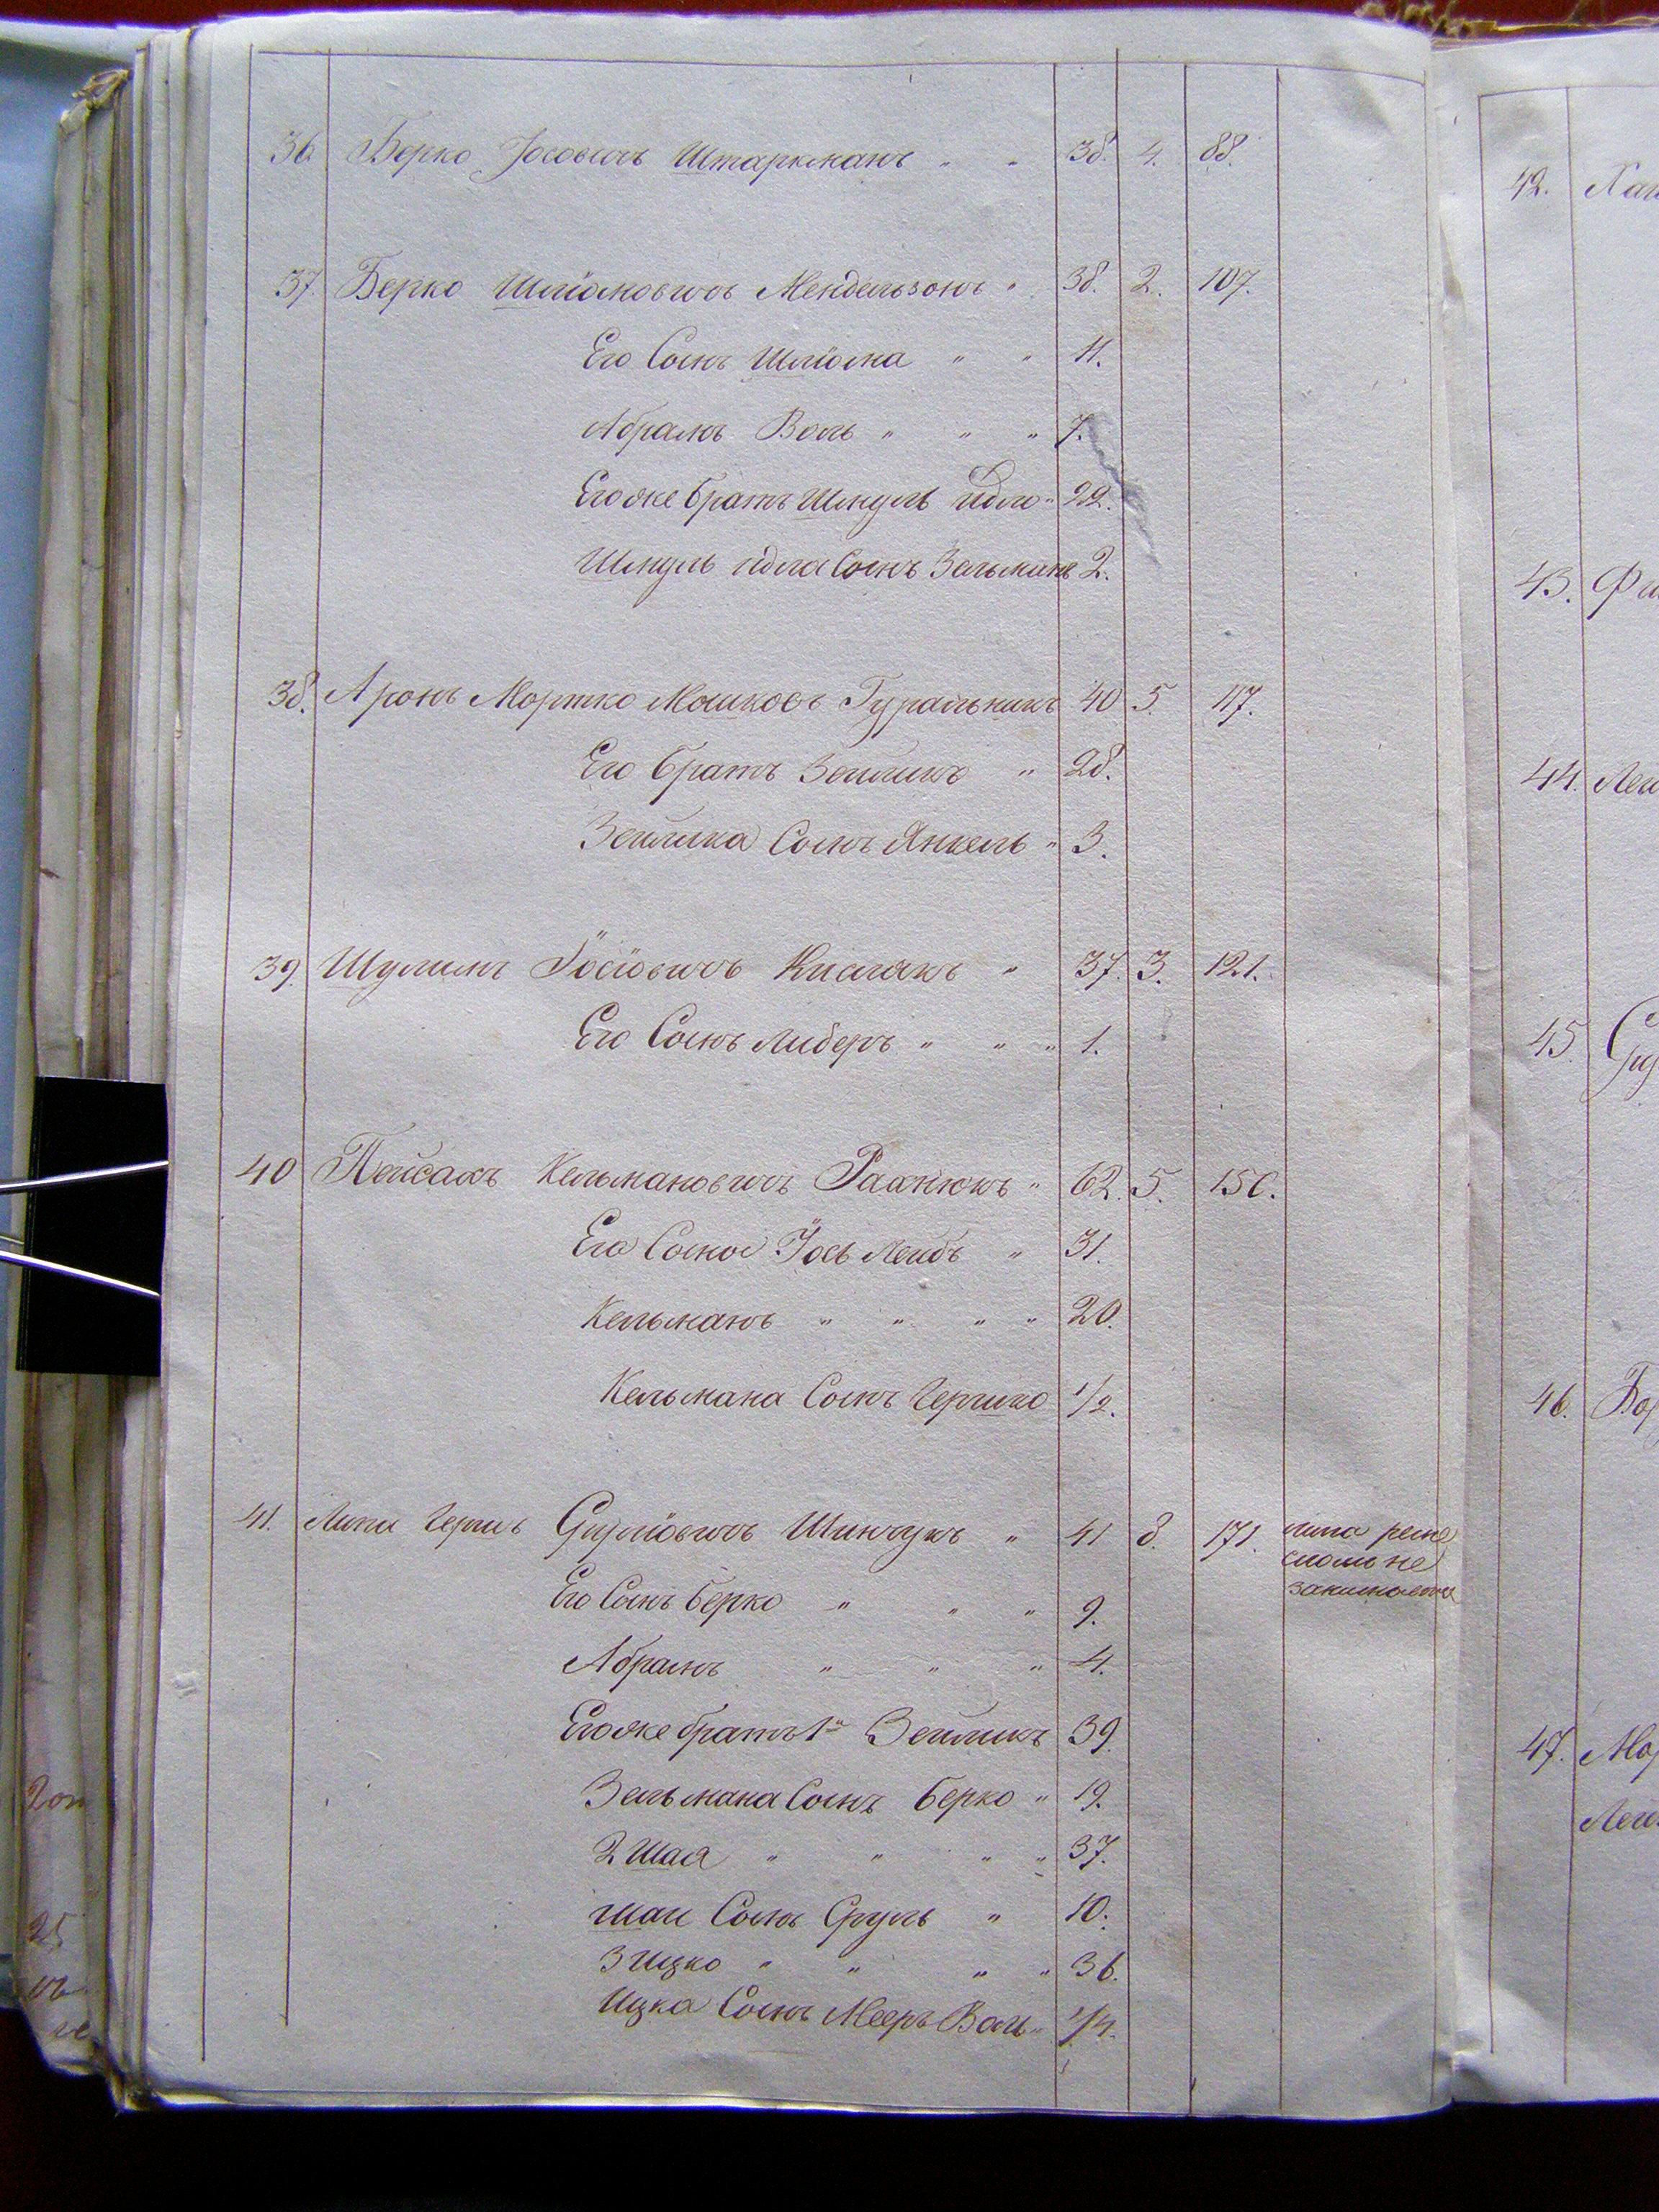 36. Берко Іосовичъ Штаркманъ " " 38. 4. 88.
37. Берко Шліомовичъ Мендельзонъ " 38. 2. 107.
Его Сынъ Шліома " " 11.
Абрамъ Воль " " " 7.
Егоже братъ Шмуль Идло " 22.
Шмуль идла Сынъ Зельманъ 2.
38. Аронъ Мортко Мошковъ Гуральникъ 40 5. 117.
Его братъ Зейликъ " 28.
Зейлика Сынъ Янкель " 3.
39. Шулимъ Іосіовичъ " 37. 3. 121.
Его Сынъ Либеръ " " " 1.
40 Пейсахъ Кельмановичъ " 62. 5. 150.
Его Сыновя Іось Лейбъ " 31.
Кельманъ " " " " 20.
Кельмана Сынъ Гершко 1/2.
41. Липа Гершъ Сруліовичъ Шинчукъ " 41 8. 171. липа реме
сломъ не
занимается
Его Сынъ Берко " " " 9.
Абрамъ " " " 4.
Егоже братъ 1й Зейликъ 39.
Зельмана Сынъ Берко " 19.
2 Шая " " " " 37.
шаи Сынъ Сруль " 10.
3 Ицко " " " " 36.
Ицка Сынъ Мееръ Воль " 1/4.
42. 
43. 
44. 
45. 
46. 
47.